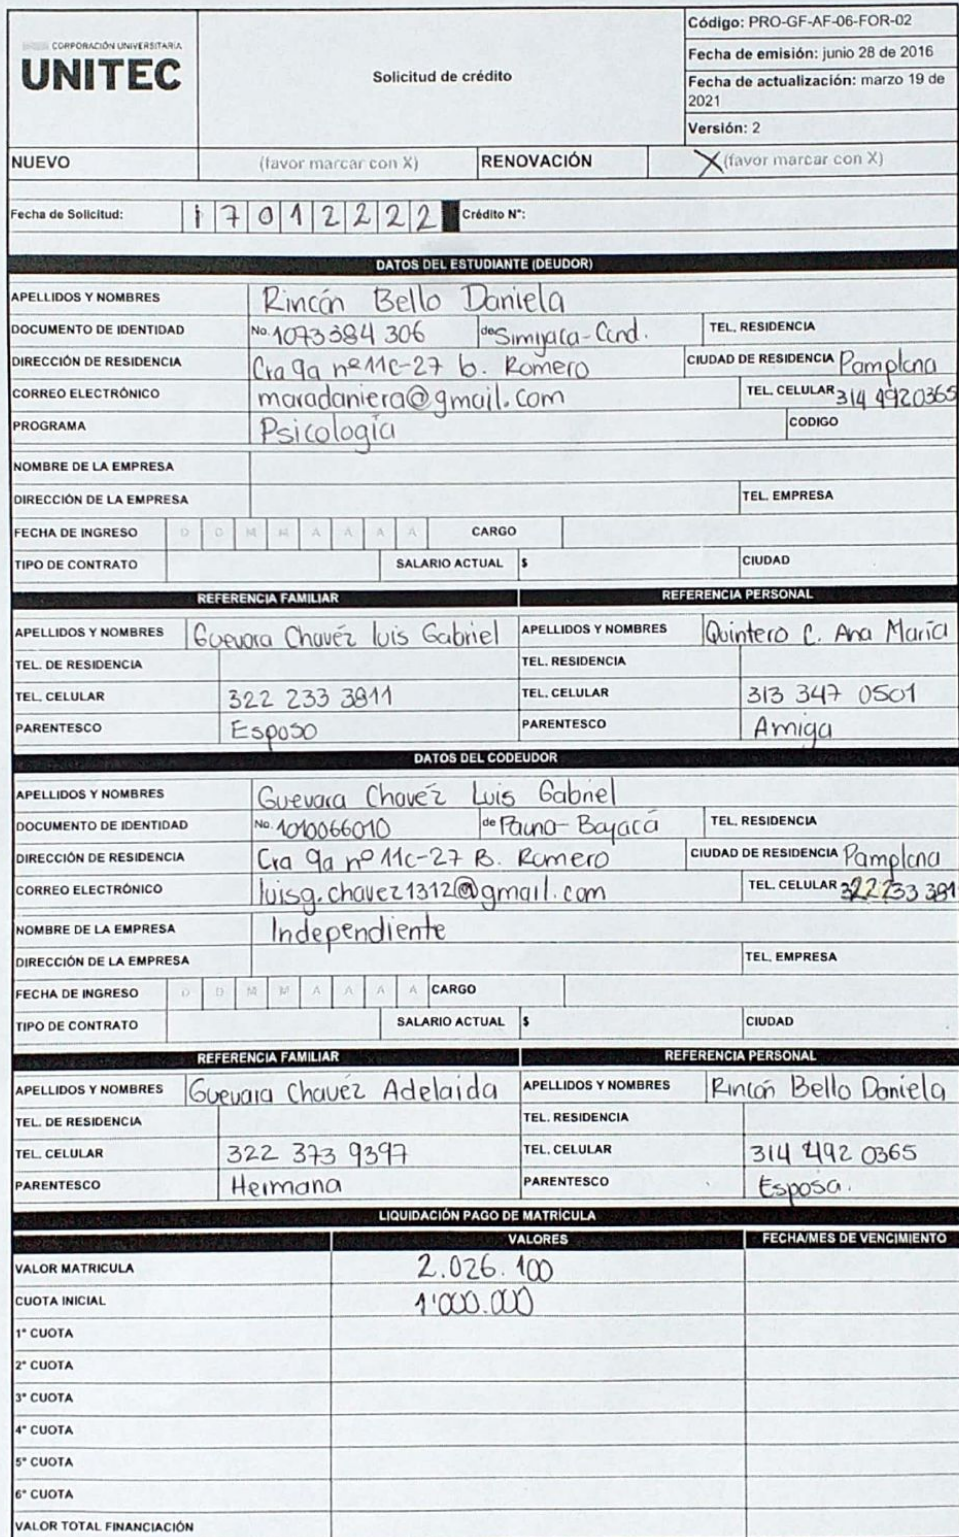 CORPORACIÓN UNIVERSITARIA
UNITEC
Solicitud de crédito
Código: PRO-GF-AF-06-FOR-02
Fecha de emisión: junio 28 de 2016
Fecha de actualización: marzo 19 de
2021
Versión: 2
NUEVO (favor marcar con X) RENOVACIÓN X (favor marcar con X)
Fecha de Solicitud: 1 7 0 1 2 2 2 2 Crédito N°:
DATOS DEL ESTUDIANTE (DEUDOR)
APELLIDOS Y NOMBRES Rincón Bello Daniela
DOCUMENTO DE IDENTIDAD No. 1073384306 de Simijaca-Cund. TEL. RESIDENCIA
DIRECCIÓN DE RESIDENCIA Cra 9a nº 11c-27 b. Romero CIUDAD DE RESIDENCIA Pamplona
CORREO ELECTRÓNICO maradaniera@gmail.com TEL. CELULAR 314 4920365
PROGRAMA Psicología CODIGO
NOMBRE DE LA EMPRESA
DIRECCIÓN DE LA EMPRESA TEL. EMPRESA
FECHA DE INGRESO D D M M A A A A CARGO
TIPO DE CONTRATO SALARIO ACTUAL $ CIUDAD
REFERENCIA FAMILIAR REFERENCIA PERSONAL
APELLIDOS Y NOMBRES Guevara Chavéz luis Gabriel APELLIDOS Y NOMBRES Quintero C. Ana María
TEL. DE RESIDENCIA TEL. RESIDENCIA
TEL. CELULAR 322 233 3811 TEL. CELULAR 313 347 0501
PARENTESCO Esposo PARENTESCO Amiga
DATOS DEL CODEUDOR
APELLIDOS Y NOMBRES Guevara Chavéz Luis Gabriel
DOCUMENTO DE IDENTIDAD No. 1010066010 de Pauna-Boyacá TEL. RESIDENCIA
DIRECCIÓN DE RESIDENCIA Cra 9a nº 11c-27 B. Romero CIUDAD DE RESIDENCIA Pamplona
CORREO ELECTRÓNICO luisg.chavez1312@gmail.com TEL. CELULAR 322 233 381
NOMBRE DE LA EMPRESA Independiente
DIRECCIÓN DE LA EMPRESA TEL. EMPRESA
FECHA DE INGRESO D D M M A A A A CARGO
TIPO DE CONTRATO SALARIO ACTUAL $ CIUDAD
REFERENCIA FAMILIAR REFERENCIA PERSONAL
APELLIDOS Y NOMBRES Guevara Chavéz Adelaida APELLIDOS Y NOMBRES Rincón Bello Daniela
TEL. DE RESIDENCIA TEL. RESIDENCIA
TEL. CELULAR 322 373 9397 TEL. CELULAR 314 492 0365
PARENTESCO Hermana PARENTESCO Esposa.
LIQUIDACIÓN PAGO DE MATRÍCULA
VALORES FECHA/MES DE VENCIMIENTO
VALOR MATRICULA 2.026.100
CUOTA INICIAL 1'000.000
1° CUOTA
2° CUOTA
3° CUOTA
4° CUOTA
5° CUOTA
6° CUOTA
VALOR TOTAL FINANCIACIÓN